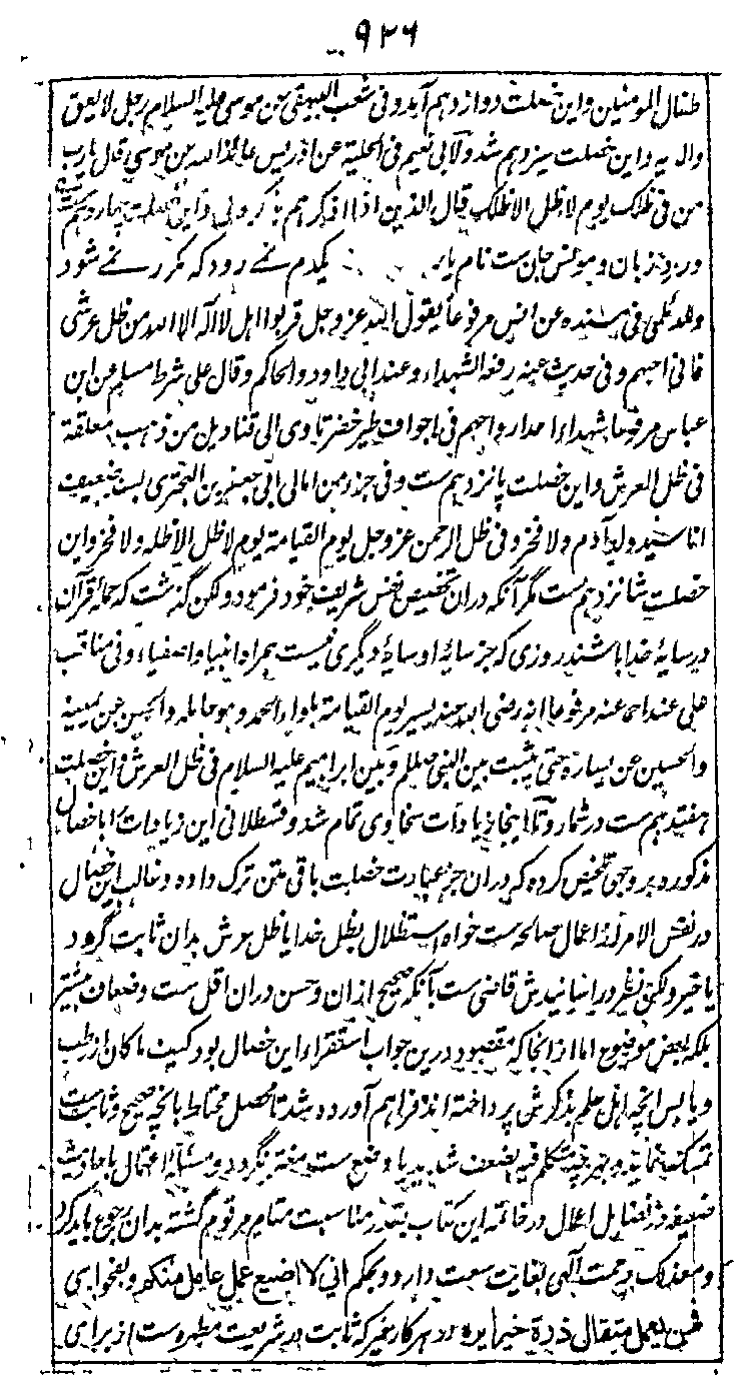 ۹۲۶
طفال المومنین واین خصلت دوازدهم آید و فی شعب البیهقی عن موسی علیه السلام رجل لا یعق
والدیه و این خصلت سیزدهم شد و لابی نعیم فی الحلیة عن ادریس عائذ الله من موسی قال یارب
من فی ظلک یوم لا ظل الا ظلک قال الذین اذا اذکرهم یذکرونی و این خصلت چهاردهم ست
ورد زبان و مونس جان ست نام یار یکدم نمے رود که مکرر نمے شود
وللدیلمی فی مسنده عن انس مرفوعا یقول الله عز وجل قربوا اهل لا اله الا الله من ظل عرشی
فانی احبهم و فی حدیث عنه رفعه الشهداء و عند ابی داود والحاکم وقال علی شرط مسلم عن ابن
عباس مرفوعا شهداء احد ارواحهم فی اجواف طیر خضر تاوی الی قنادیل من ذهب معلقة
فی ظل العرش واین خصلت پانزدهم ست و فی جزء من امالی ابی جعفر بن البختری بسند ضعیف
انا سید ولد آدم ولا فخر و فی ظل الرحمن عز وجل یوم القیامة یوم لا ظل الا ظله ولا فخر واین
خصلت شانزدهم ست مگر آنکه دران تخصیص نفس شریف خود فرمود و لکن گذشت که حملۀ قرآن
در سایۀ خدا باشند روزی که جز سایۀ او سایۀ دیگری نیست همراه انبیا و اصفیاء و فی مناقب
علی عند احمد عنه مرفوعا انه رضی الله عنه یسیر یوم القیامة بلواء الحمد و هو حامله والحسن عن یمینه
والحسین عن یساره حتی یثبت بین النبی صللم و بین ابراهیم علیه السلام فی ظل العرش واین خصلت
هفتدهم ست در شمار و تا اینجا زیادات سخاوی تمام شد و قسطلانی این زیادات را با خصال
مذکوره بر وجهی تلخیص کرده که دران جز عبادت خصلت باقی متن ترک داده و غالب این خصال
در نفس الامر از اعمال صالحه ست خواه استظلال بظل خدا یا ظل عرش بدان ثابت گردد
یا خیر و لکن نظر در اسانیدش قاضی ست بآنکه صحیح ازان و حسن دران اقل ست و ضعاف بیشتر
بلکه بعض موضوع اما از انجا که مقصود درین جواب استقراء این خصال بود کیف ما کان از رطب
و یابس انچه اهل علم بذکرش پرداخته اند فراهم آورده شد تا محصل محتاط بانچه صحیح و ثابت ست
تمسک نماید و بهرچه متکلم فیه بضعف شدید یا وضع ست مغتر نگردد و مسئلۀ اعتمال باحادیث
ضعیفه در فضایل اعمال در خاتمه این کتاب بقدر مناسبت مقام مرقوم گشته بدان رجوع باید کرد
و معذلک رحمت الهی بغایت سعت دارد و بحکم انی لا اضیع عمل عامل منکم و بفحوای
فمن یعمل مثقال ذرة خیرا یره در هر کار خیر که ثابت در شریعت مطهره ست از برای